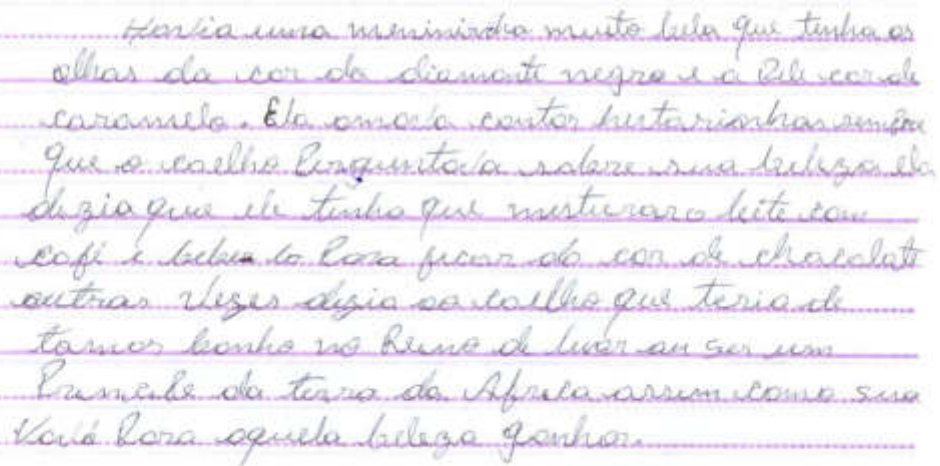 Havia uma menininha muito bela que tinha os
olhos da cor do diamante negro e a Pele cor de
caramelo. Ela amava contar historinhas sempre
que o coelho Perguntava sobre sua beleza ela
dizia que ele tinha que misturar o leite com
café e bebe-lo Para ficar da cor de chocolate
outras vezes dizia ao coelho que teria de
tomar banho no Reino de luar ou ser um
Principe da terra da Africa assim como sua
Vovó Para aquela beleza ganhar.